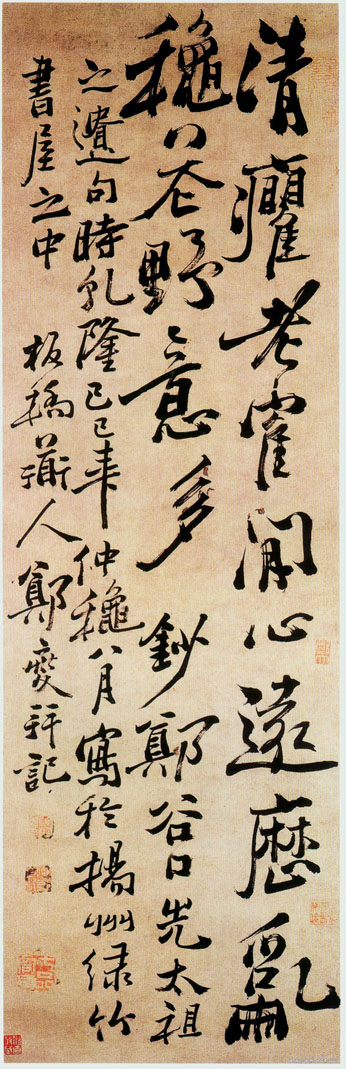 清癯老寉閒心遠歷亂
穐花野意多 鈔鄭谷口先太祖
之遺句時乾隆己巳年仲穐八月寫於揚州綠竹
書屋之中 板橋衜人鄭燮拜記